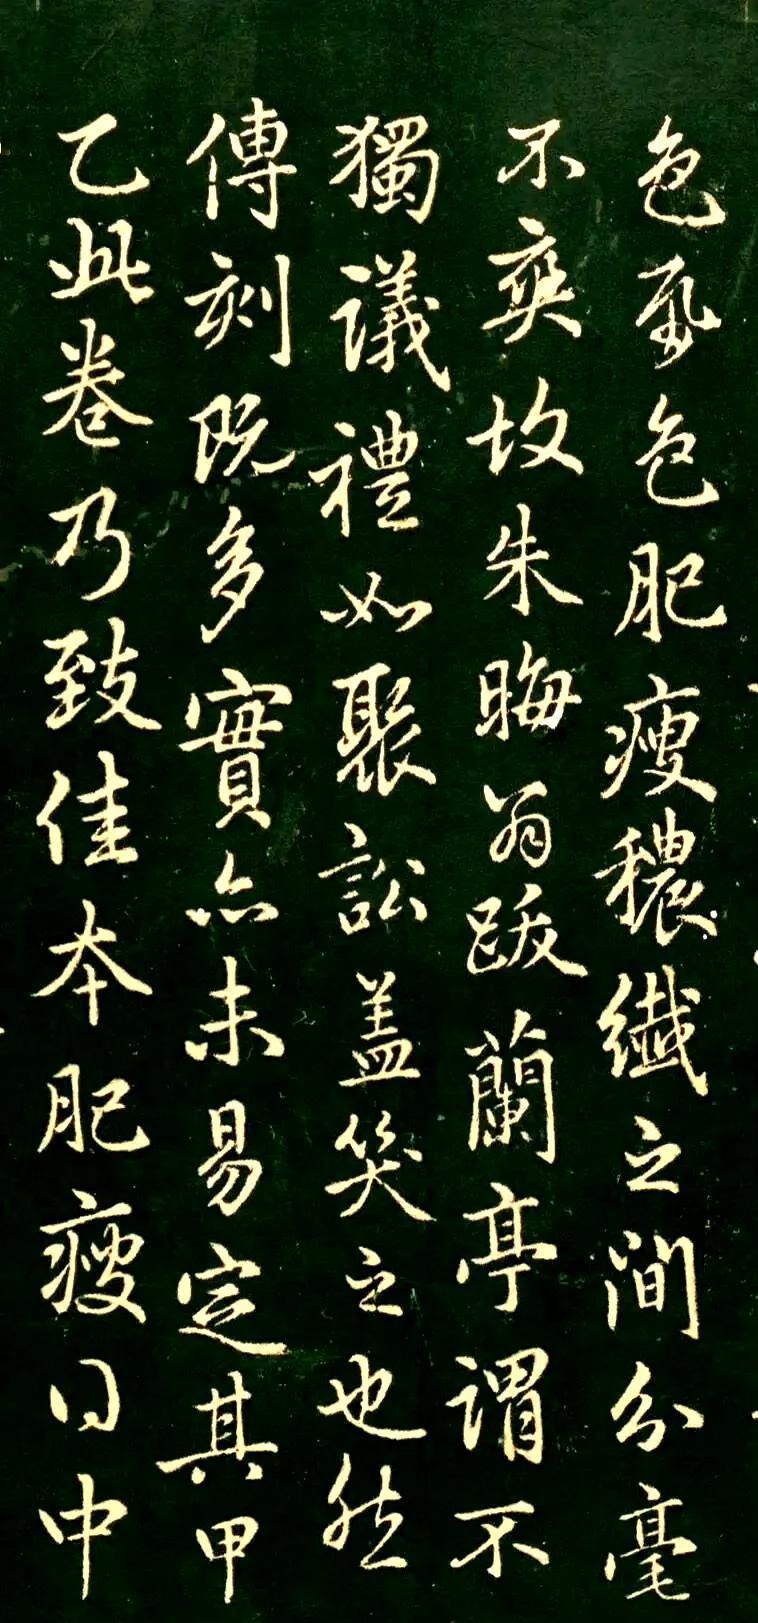 色帋色肥瘦穠纖之間分毫
不爽故朱晦翁跋蘭亭謂不
獨議禮如聚訟蓋笑之也然
傳刻既多實亦未易定其甲
乙此卷乃致佳本肥瘦得中